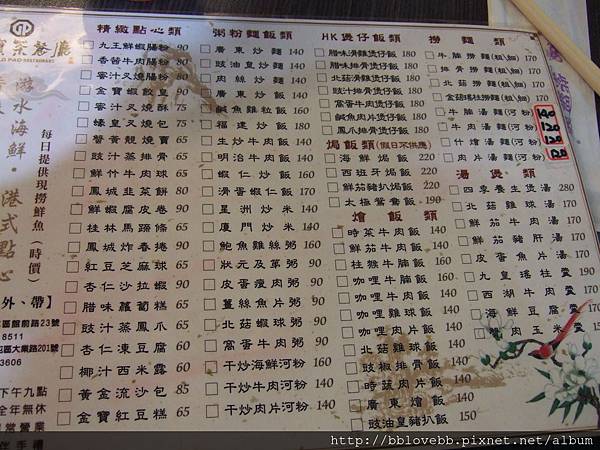 寶泉餐廳
LD PAO RESTAURANT
游水海鮮・港式點心
每日提供現撈鮮魚(時價)
外、帶】
前路23號
8511
區大業路201號
3606
下午九點
全年無休
常營業
伴手禮
精緻點心類
九王鮮蝦腸粉 90
香茜牛肉腸粉 80
蜜汁叉燒腸粉 80
金寶蝦餃皇 90
蜜汁叉燒酥 75
蠔皇叉燒包 75
蟹黃靚燒賣 65
豉汁蒸排骨 65
鮮竹牛肉球 65
鳳城韭菜餅 80
鮮蝦腐皮卷 90
桂林馬蹄條 65
鳳城炸春捲 90
紅豆芝麻球 65
杏仁沙拉蝦 90
腊味蘿蔔糕 65
豉汁蒸鳳爪 65
杏仁凍豆腐 60
椰汁西米露 60
黃金流沙包 85
金寶紅豆糕 65
粥粉麵飯類
廣東炒麵 140
豉油皇炒麵 140
肉絲炒麵 140
廣東炒飯 140
鹹魚雞粒飯 160
福建炒飯 160
生炒牛肉飯 140
明治牛肉飯 140
蝦仁炒飯 160
滑蛋蝦仁飯 160
星洲炒米 140
廈門炒米 140
鮑魚雞絲粥 160
狀元及第粥 90
皮蛋瘦肉粥 90
薑絲魚片粥 90
北菇蝦球粥 90
窩蛋牛肉粥 90
干炒海鮮河粉 160
干炒牛肉河粉 140
干炒肉片河粉 140
HK煲仔飯類
腊味滑雞煲仔飯 180
腊味排骨煲仔飯 180
北菇滑雞煲仔飯 180
豉汁排骨煲仔飯 180
窩蛋牛肉煲仔飯 180
鹹魚肉片煲仔飯 180
鳳爪排骨煲仔飯 180
焗飯類(假日不供應)
海鮮焗飯 220
西班牙焗飯 220
鮮茄豬扒焗飯 210
太極鴛鴦飯 190
燴飯類
時菜牛肉飯 140
鮮茄牛肉飯 140
柱候牛腩飯 160
咖哩牛腩飯 160
咖哩牛肉飯 140
咖哩肉片飯 140
北菇雞球飯 140
豉椒排骨飯 140
時蔬肉片飯 140
廣東燴飯 160
豉油皇豬扒飯 150
撈麵類
牛腩撈麵(粗|細) 170
排骨撈麵(粗|細) 170
北菇撈麵(粗|細) 170
金菇瑤柱撈麵(粗|細) 170
牛腩湯麵(河粉)
牛肉湯麵(河粉) 120
什錦湯麵(河粉)
肉片湯麵(河粉) 120
湯煲類
四季養生煲 280
北菇雞球湯 170
鮮茄牛肉湯 170
鮮茄豬肝湯 170
皮蛋魚片湯 170
九皇瑤柱羹
西湖牛肉羹
海鮮豆腐羹
雞肉玉米羹
http://bblovebb.pixnet.net/album